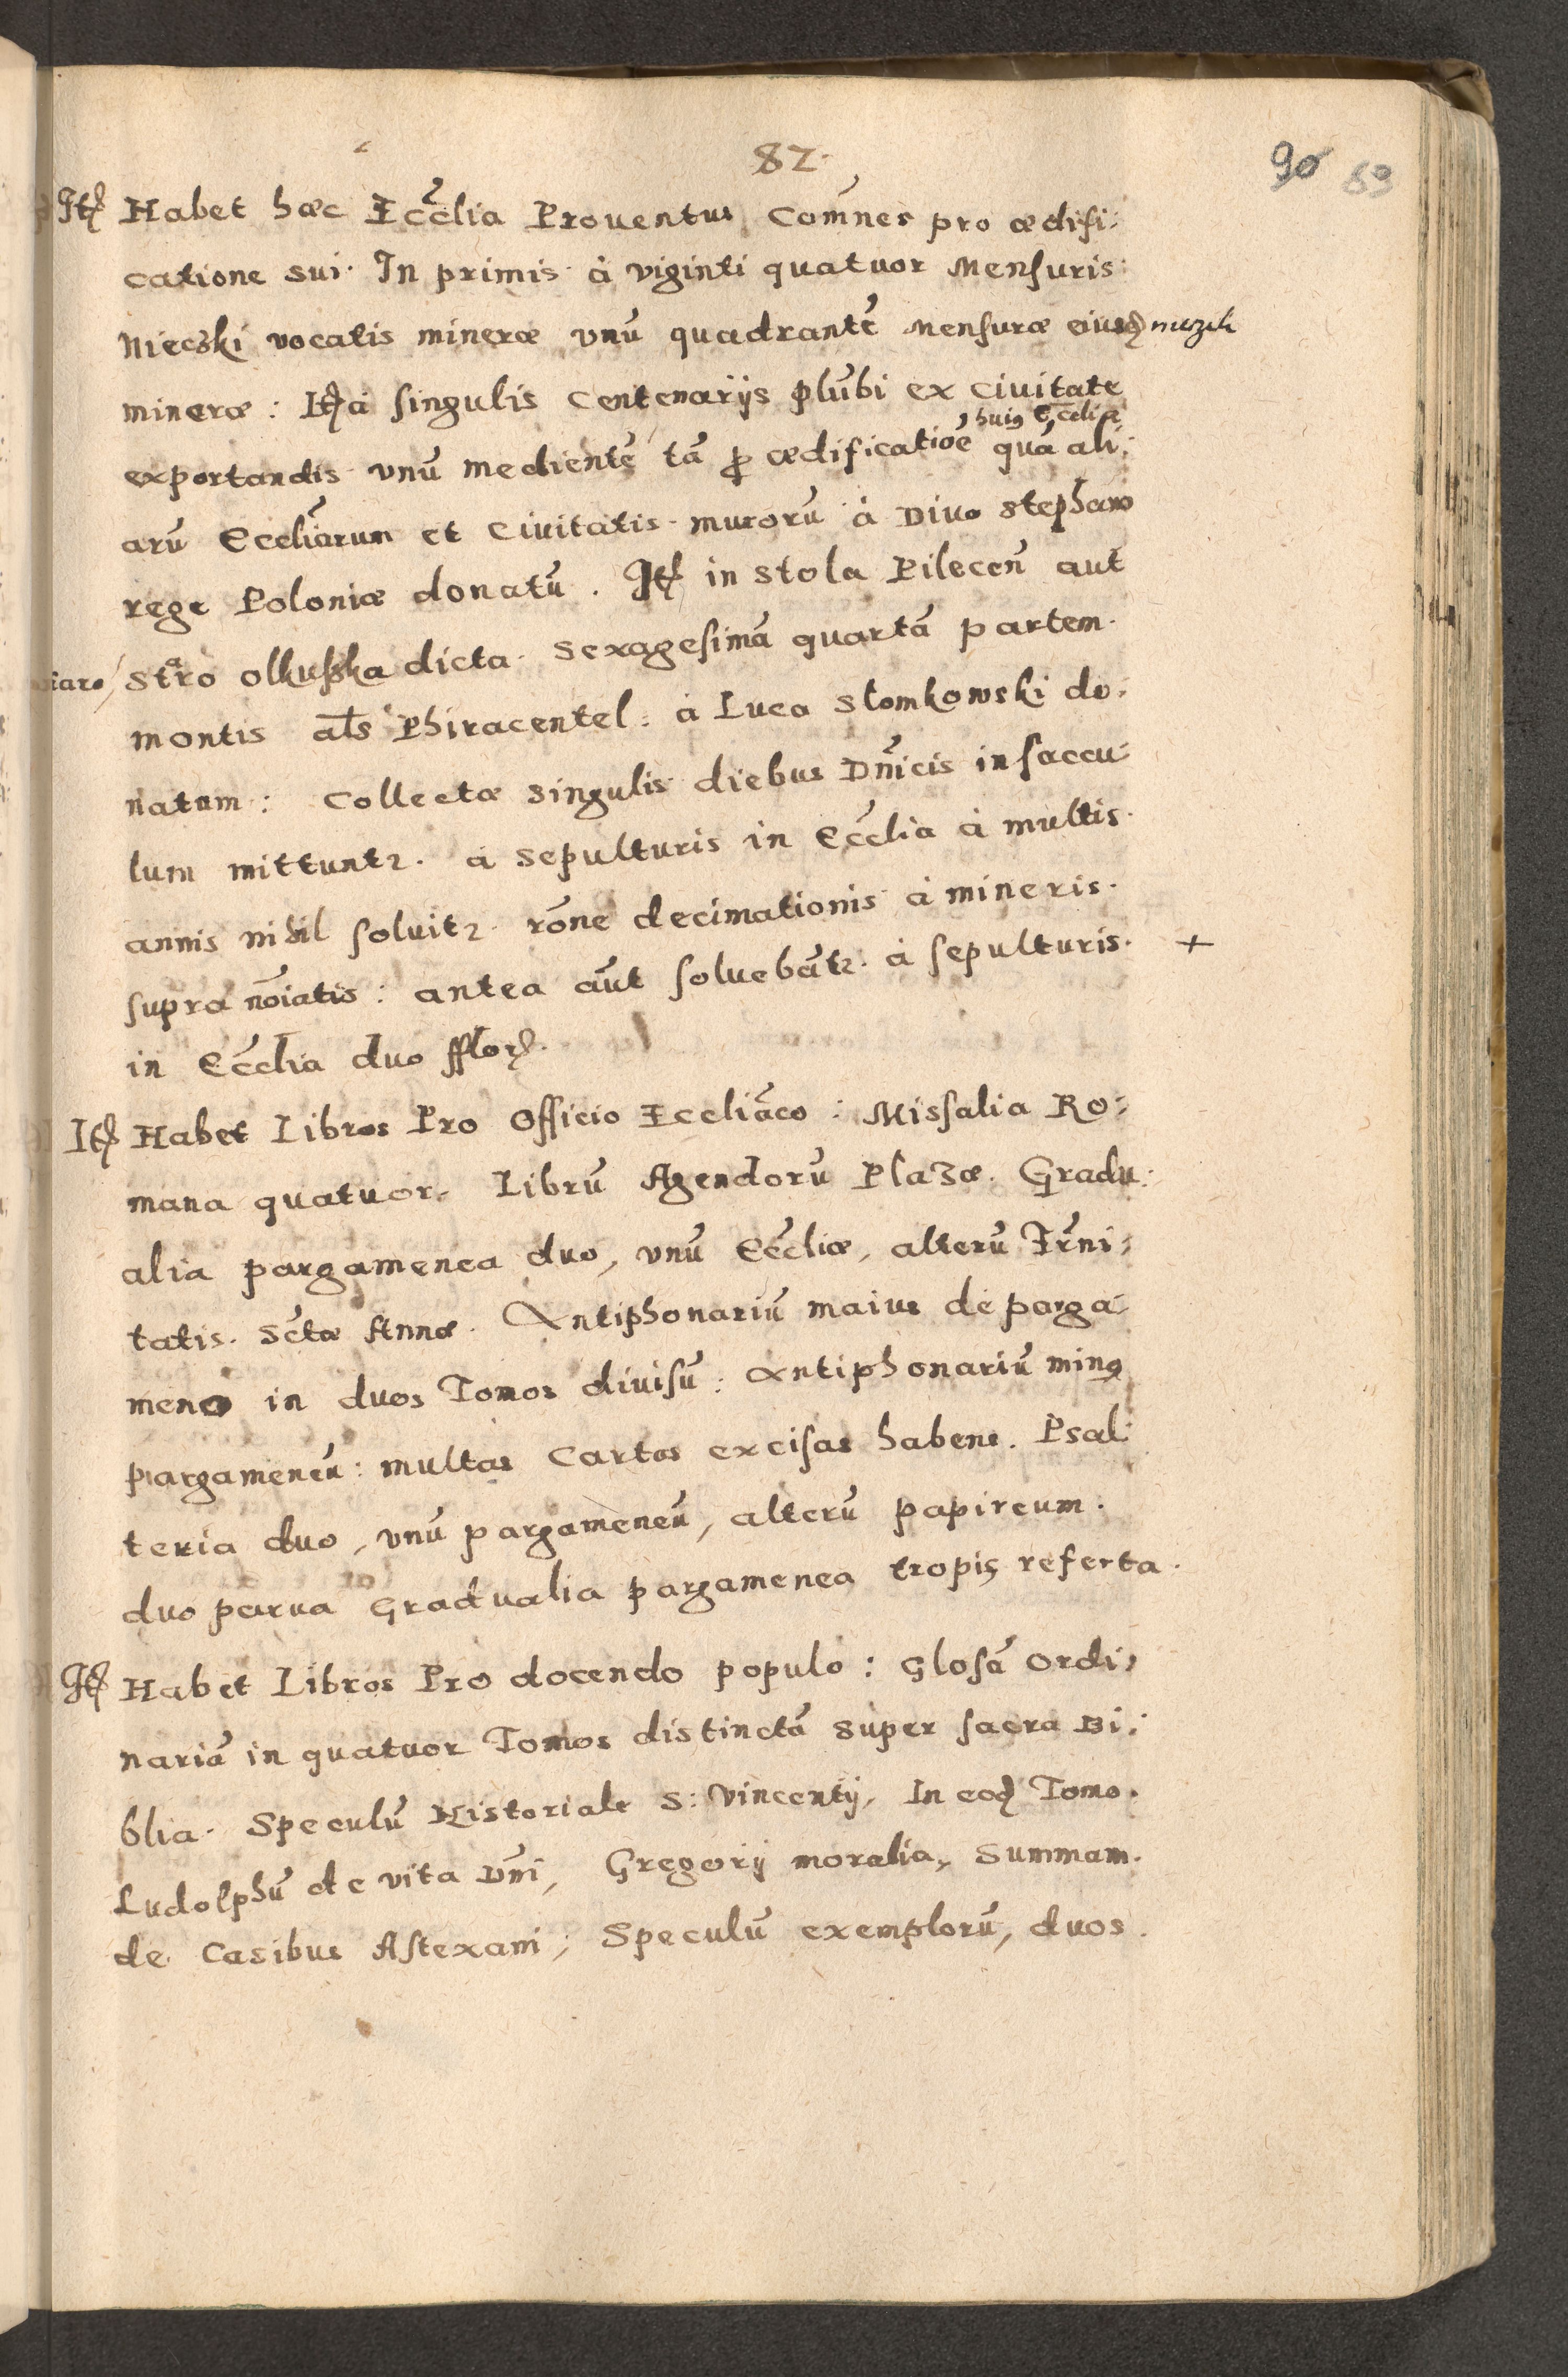 82.
90 89
Itẽ Habet hæc Eccĩlia Prouentus Com̃nes pro ædifi:
catione sui. In primis à viginti quatuor Mensuris
Niecski vocatis mineræ vnũ quadrantẽ Mensuræ eiusd niezek
mineræ: Itẽ à singulis Centenarijs plũbi ex Ciuitate
huiꝯ Ecclią
exportandis vnũ medientẽ tã ꝓ ædificatiõe quã ali:
arũ Eccliãrum et Ciuitatis murorũ à Diuo Stephano
rege Poloniæ donatũ. Itẽ in Stola Pilecen̄ aut
Staro olkuska dicta Sexagesimã quartã partem.
montis al̄s Phiracentel: à Luca Slomkowski do:
natam: Collectæ singulis diebus Dñicis in saccu:
lum mittuntr. à Sepulturis in Ecc̃lia à multis
annis nihil soluitr. rõne decimationis à mineris.
supra nõiatis: antea aũt soluebãtr. à sepulturis. +
in Ecc̃lia duo fflorẽ.
Itẽ Habet Libros Pro Officio Eccliãco: Missalia Ro:
mana quatuor. Librũ Agendorũ Plazæ. Gradu:
alia pargamenea duo, vnũ Ecc̃liæ, alterũ Trñi:
tatis. Sc̃tæ Annæ. Antiphonariũ maius de parga:
meno in duos Tomos diuisũ: Antiphonariũ minꝯ
pargameneũ: multas Cartas excisas habens. Psal:
teria duo, vnũ pargameneũ, alterũ papireum.
duo parua Gradualia pargamenea tropis referta.
Itẽ Habet Libros Pro docendo populo: Glosã Ordi:
nariã in quatuor Tomos distinctã super sacra Bi:
blia. Speculũ Historiale S: Vincentij, In eod Tomo.
Ludolphũ de vita Dñi, Gregorij moralia, Summam.
de Casibus Astexani, Speculũ exemplorũ, duos.